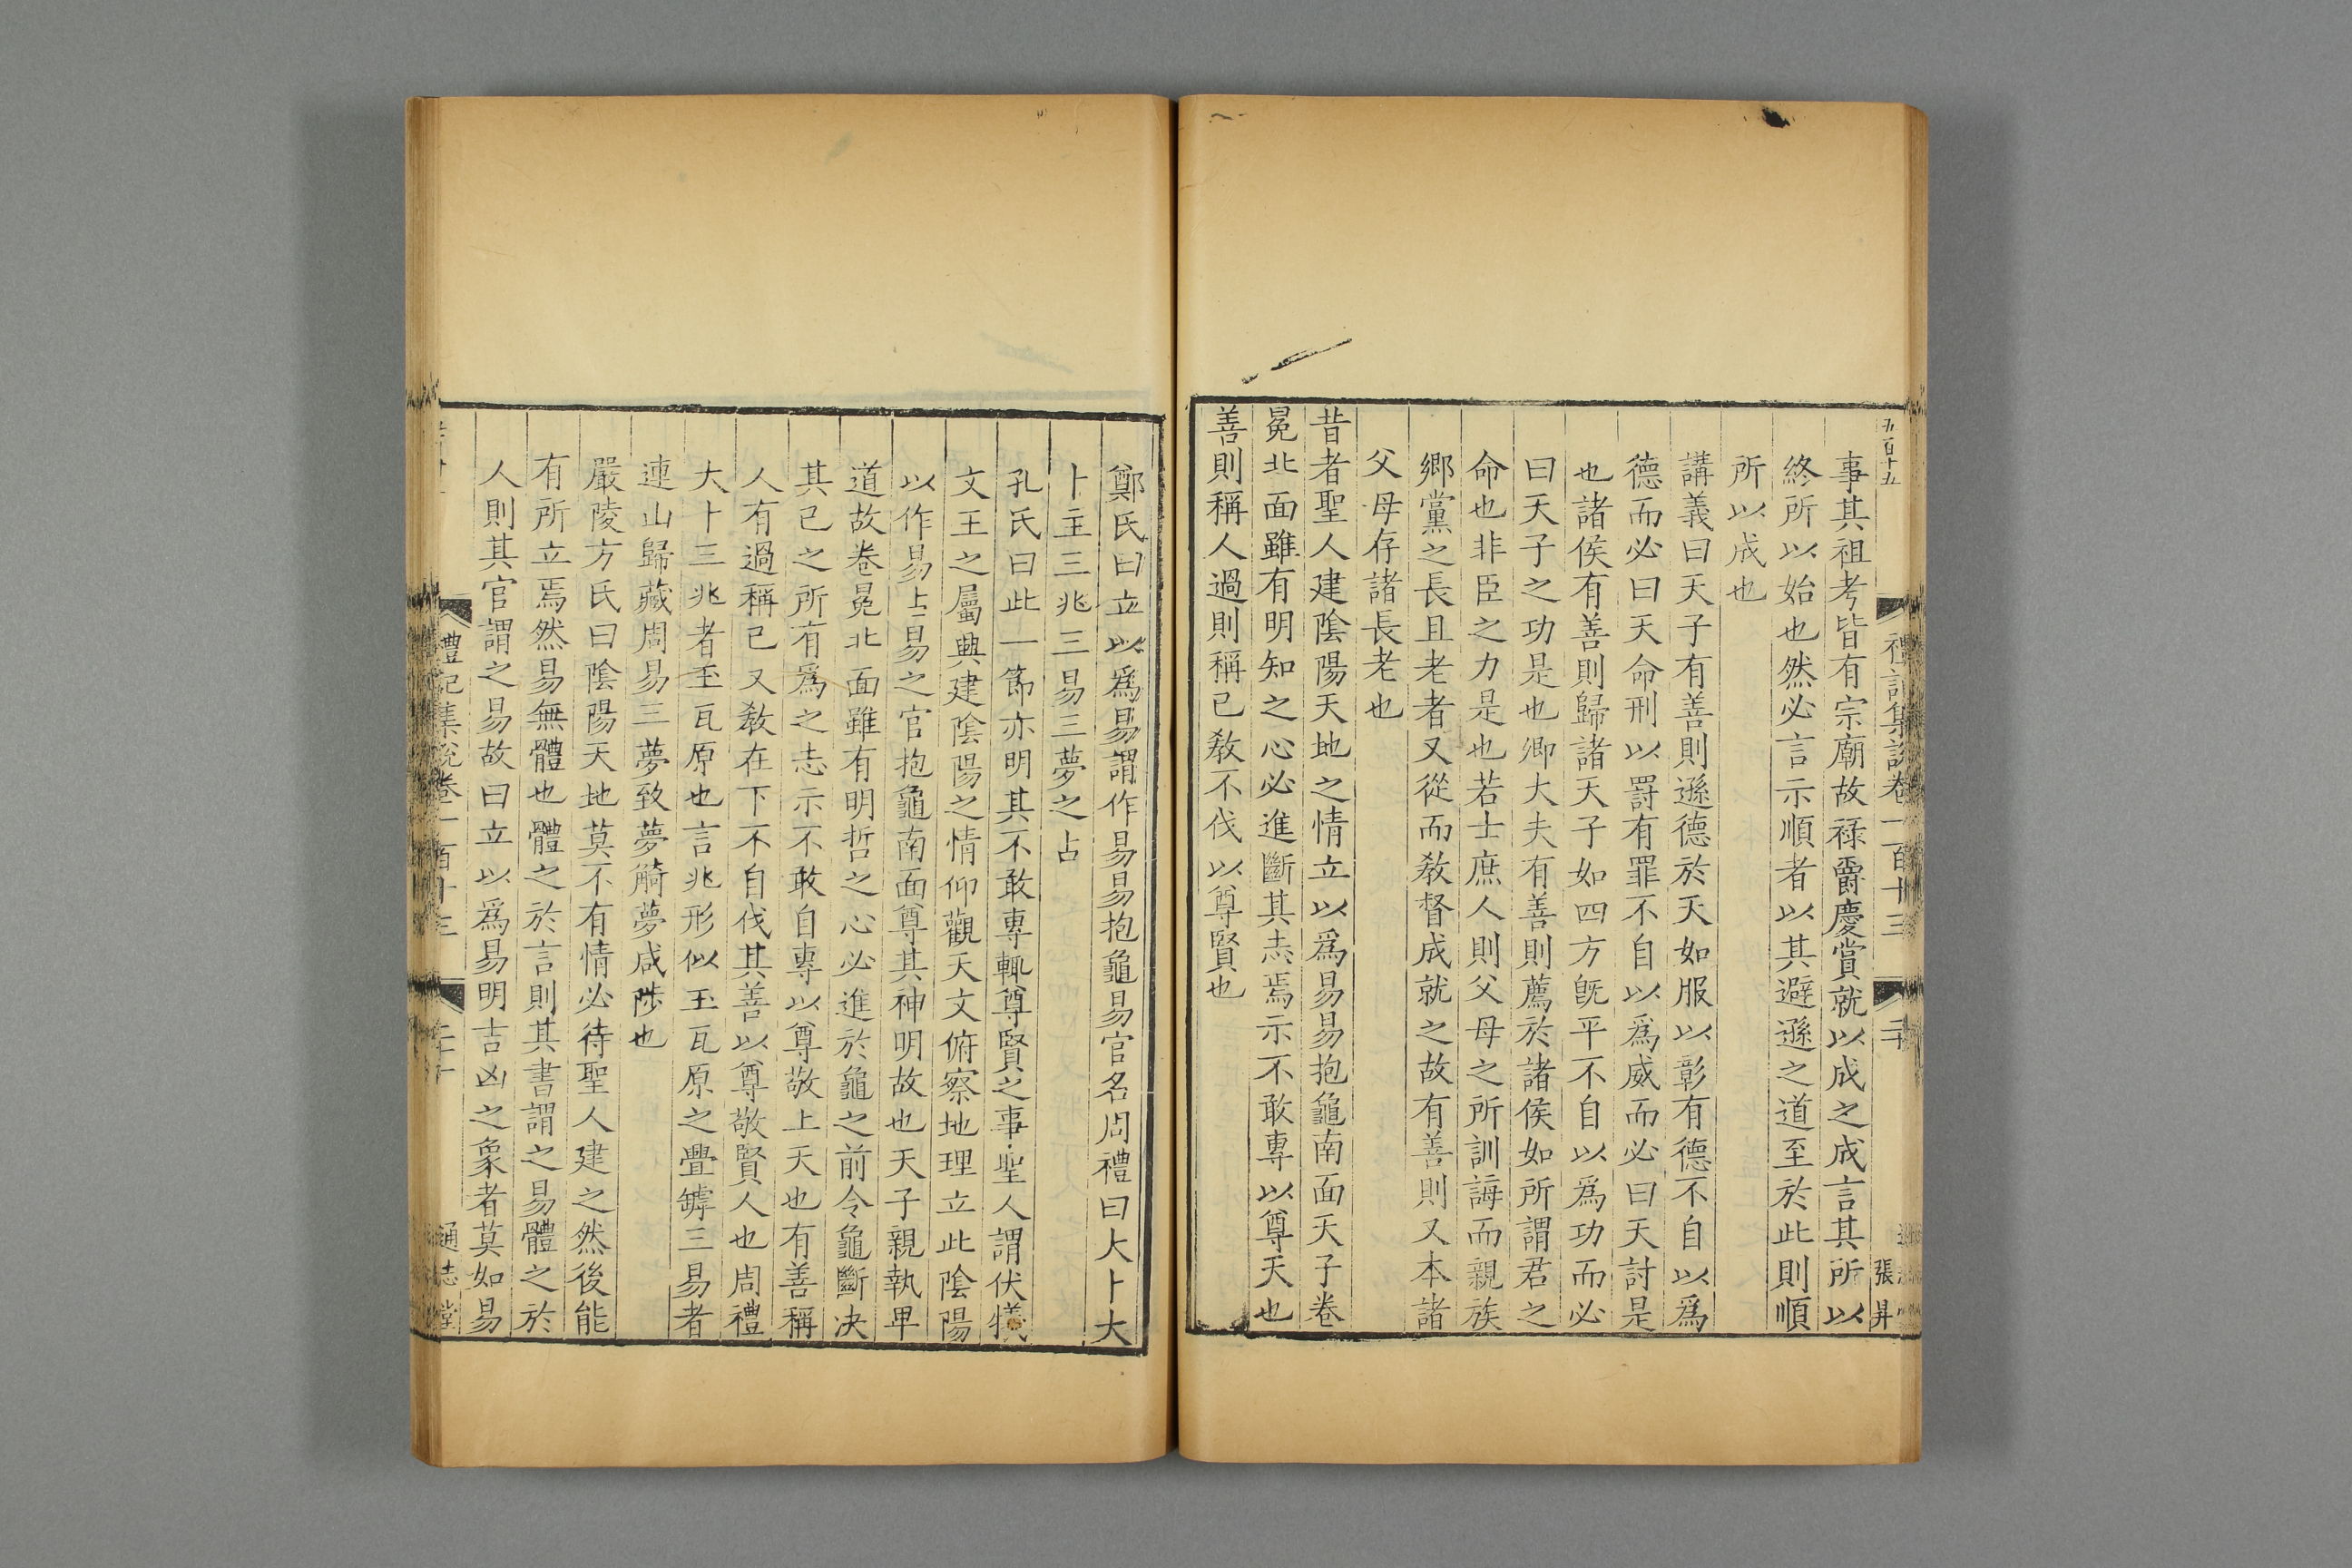 五百十五
禮記集說卷一百十三
二十
張昇
事其祖考皆有宗廟故祿爵慶賞就以成之成言其所以
終所以始也然必言示順者以其避遜之道至於此則順
所以成也
講義曰天子有善則遜德於天如服以彰有德不自以為
德而必曰天命刑以罸有罪不自以為威而必曰天討是
也諸侯有善則歸諸天子如四方旣平不自以為功而必
曰天子之功是也卿大夫有善則薦於諸侯如所謂君之
命也非臣之力是也若士庶人則父母之所訓誨而親族
鄉黨之長且老者又從而敎督成就之故有善則又本諸
父母存諸長老也
昔者聖人建陰陽天地之情立以為易易抱龜南面天子卷
冕北面雖有明知之心必進斷其志焉示不敢專以尊天也
善則稱人過則稱已敎不伐以尊賢也
鄭氏曰立以為易謂作易易抱龜易官名周禮曰大卜大
卜主三兆三易三夢之占
孔氏曰此一節亦明其不敢專輒尊賢之事聖人謂伏犧
文王之屬興建陰陽之情仰觀天文俯察地理立此陰陽
以作易上易之官抱龜南面尊其神明故也天子親執卑
道故卷冕北面雖有明哲之心必進於龜之前令龜斷决
其已之所有為之志示不敢自專以尊敬上天也有善稱
人有過稱已又敎在下不自伐其善以尊敬賢人也周禮
大卜三兆者玉瓦原也言兆形似玉瓦原之舋罅三易者
連山歸藏周易三夢致夢觭夢咸陟也
嚴陵方氏曰陰陽天地莫不有情必待聖人建之然後能
有所立焉然易無體也體之於言則其書謂之易體之於
人則其官謂之易故曰立以為易明吉凶之象者莫如易
禮記集說卷一百十三
二十
通志堂